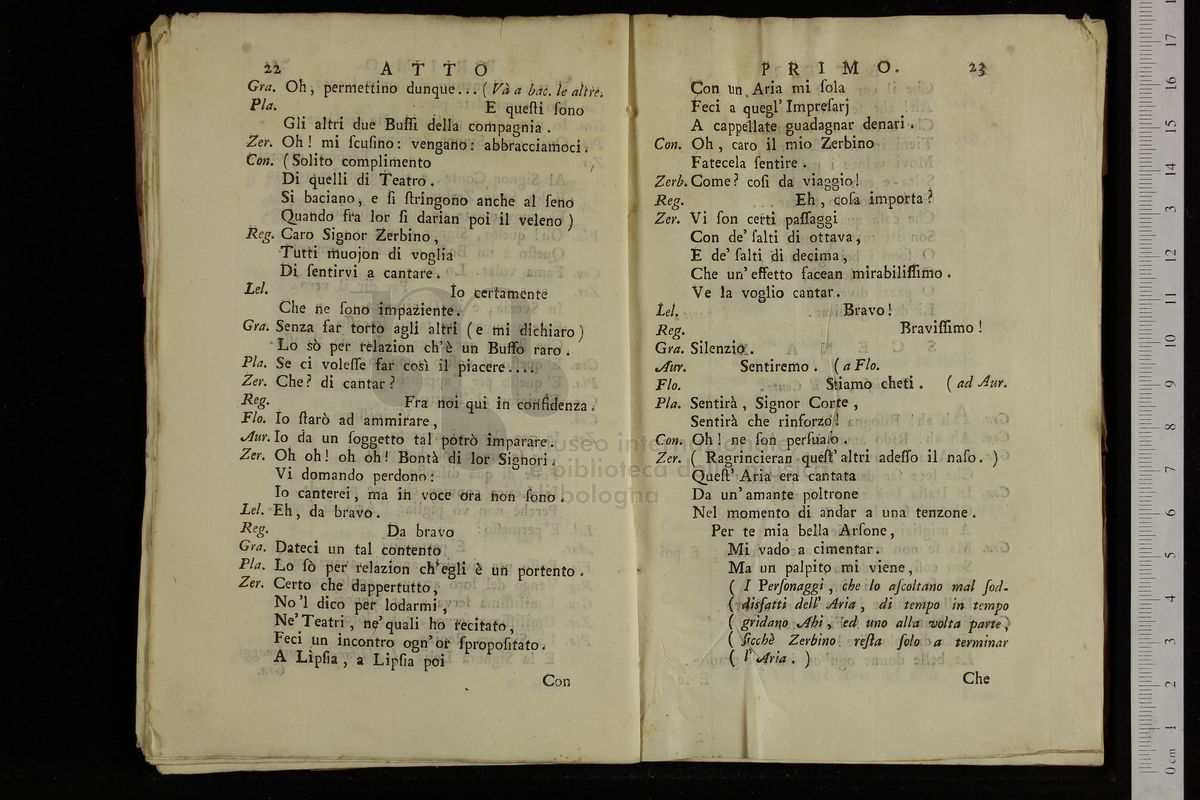 22 ATTO
Gra. Oh, permettino dunque... (Và a bac. le altre.
Pla. E queſti ſono
Gli altri due Buffi della compagnia.
Zer. Oh! mi ſcuſino: vengano: abbracciamoci.
Con. (Solito complimento
Di quelli di Teatro.
Si baciano, e ſi ſtringono anche al ſeno
Quando fra lor ſi darian poi il veleno)
Reg. Caro Signor Zerbino,
Tutti muojon di voglia
Di ſentirvi a cantare.
Lel. Io certamente
Che ne ſono impaziente.
Gra. Senza far torto agli altri (e mi dichiaro)
Lo sò per relazion ch'è un Buffo raro.
Pla. Se ci voleſſe far così il piacere....
Zer. Che? di cantar?
Reg. Fra noi qui in confidenza.
Flo. Io ſtarò ad ammirare,
Aur. Io da un ſoggetto tal potrò imparare.
Zer. Oh oh! oh oh! Bontà di lor Signori.
Vi domando perdono:
Io canterei, ma in voce ora non ſono.
Lel. Eh, da bravo.
Reg. Da bravo
Gra. Dateci un tal contento
Pla. Lo ſò per relazion ch'egli è un portento.
Zer. Certo che dappertutto,
No'l dico per lodarmi,
Ne' Teatri, ne' quali ho recitato,
Feci un incontro ogn' or ſpropoſitato.
A Lipſia, a Lipſia poi
Con
PRIMO. 23
Con un Aria mi ſola
Feci a quegl' Impreſarj
A cappellate guadagnar denari.
Con. Oh, caro il mio Zerbino
Fatecela ſentire.
Zerb. Come? coſi da viaggio!
Reg. Eh, coſa importa?
Zer. Vi ſon certi paſſaggi
Con de' ſalti di ottava,
E de' ſalti di decima,
Che un' effetto facean mirabiliſſimo.
Ve la voglio cantar.
Lel. Bravo!
Reg. Braviſſimo!
Gra. Silenzio.
Aur. Sentiremo. (a Flo.
Flo. Stiamo cheti. (ad Aur.
Pla. Sentirà, Signor Corte,
Sentirà che rinforzo!
Con. Oh! ne ſon perſuaſo.
Zer. (Ragrincieran queſt' altri adeſſo il naſo.)
Queſt' Aria era cantata
Da un' amante poltrone
Nel momento di andar a una tenzone.
Per te mia bella Arſone,
Mi vado a cimentar.
Ma un palpito mi viene,
( I Perſonaggi, che lo aſcoltano mal ſod-
( disfatti dell' Aria, di tempo in tempo
( gridano Ahi, ed uno alla volta parte,
( ſicchè Zerbino reſta ſolo a terminar
( l' Aria. )
Che